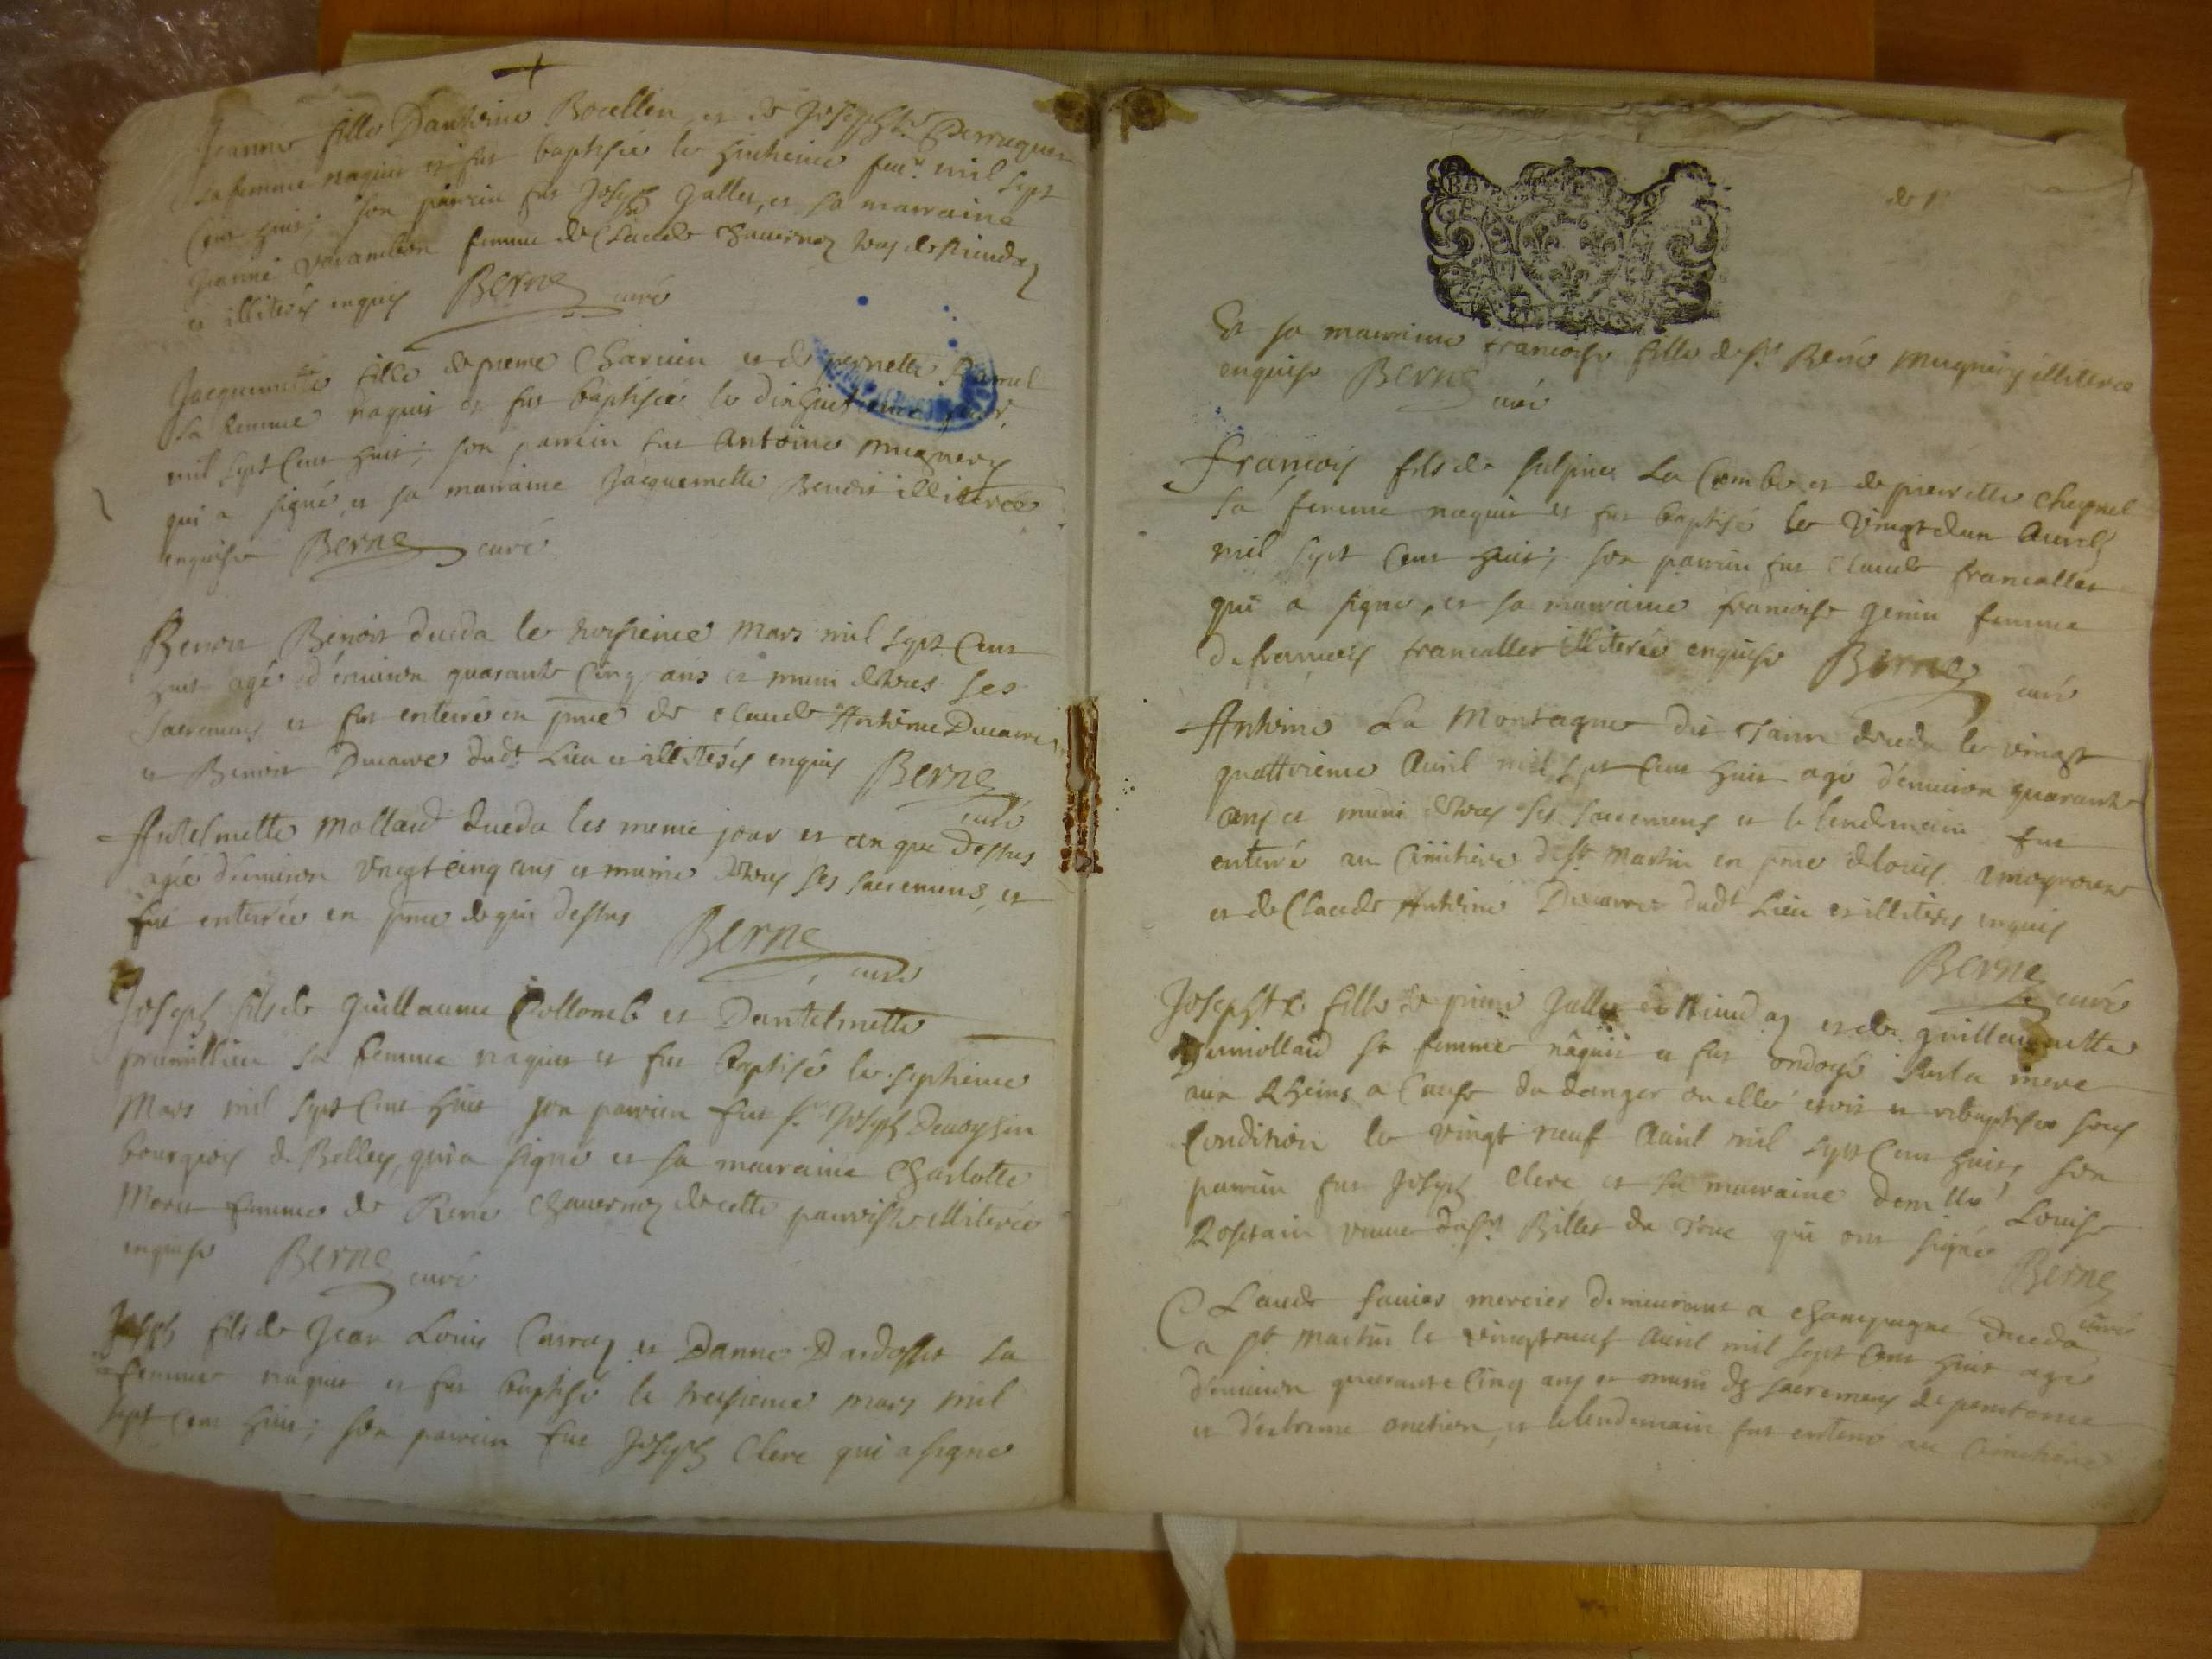 Jeanne fille Dantoine Bocellen et de Josephte Perruquet
sa femme naquit et fut baptisée le huitieme feur. mil sept
Cent huit; son parrain fut Joseph Gallet, et sa marraine
Jeanne Varambon femme de Claude Chauernoz tous de
et illiterés enquis Berne curé
Jacquemette fille de pierre Charuin et de pernette
sa femme naquit et fut baptisée le dixhuitieme
mil sept Cent huit; son parrain fut Antoine Mugnery
qui a signé, et sa marraine Jacquemette Bendit illiterée
enquise Berne curé
Benoit Benoit dueda le troisieme Mars mil sept Cent
huit agé d'enuiron quarante Cinq ans et muni de tous ses
sacremens et fut enterré en pnce de Claude Anthoine Ducarre
et Benoit Ducarre dudt Lieu et illiterés enquis Berne
curé
Antelmette Mollard dueda les meme jour et an que dessus
agée d'enuiron vingt cinq ans et munie de tous ses sacremens, et
fut enterrée en pnce de qui dessus Berne
curé
Joseph fils de Guillaume Collomb et Dantelmette
prumillieu sa femme naquit et fut baptisé le septieme
Mars mil sept Cent huit son parrain fut sr Joseph Deuoysin
bourgeois de Belley, qui a signé et sa marraine Charlotte
Moret femme de René Chauernoz de cette parroisse illiterée
enquise Berne curé
Joseph fils de Jean Louis Curraz et Danne Dardosset sa
femme naquit et fut baptisé le treisieme mars mil
sept cent huit; son parrain fut Joseph Clerc qui a signé
de 1
Et sa marraine francoise fille de sr René Mugnery illiterée
enquise Berne curé
françois fils de sulpice La Combe et de pierrette Cheynel
sa femme naquit et fut baptisé le vingt dun Auril
mil sept Cent huit; son parrain fut Claude francallet
qui a signé, et sa marraine francoise genin femme
de francois francallet illiterée enquise Berne curé
Anthoine La Montagne dit deceda le vingt
quattrieme Auril mil sept Cent huit agé d'enuiron quarante
ans et muni de tous ses sacremens et le lendemain fut
enterré au Cimitiere de st Martin en pnce de louis
et de Claude Anthoine Ducarre dudt Lieu et illiterés enquis
Berne curé
Josephte fille de pierre Gallet et de guillaumette
sa femme nâquit et fut ondoyé par la mere
aux Rheins a Cause du danger ou elle étoit et rebaptisée sous
Condition le vingt neuf Auril mil sept Cent huit, son
parrain fut Joseph Clerc et sa marraine demlle Louise
Rossetain veuue de sr. Billet de qui ont signé Berne
curé
Claude fauier mercier demeurant a Champagne dueda
a st Martin le vingt neuf Auril mil sept Cent huit agé
d'enuiron quarante Cinq ans et muni des sacremens de penitence
et d'extreme onction, et le lendemain fut enterré au Cimitiere